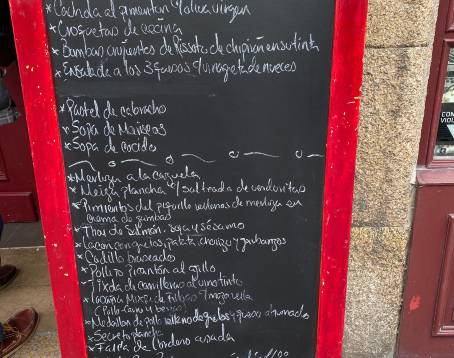 * Cachida al pimentón y oliva virgen
* Croquetas de cocina
* Bombas crujientes de Rissoto de chipirón en su tinta
* Ensalada a los 3 quesos y vinagreta de nueces
* Pastel de cabracho
* Sopa de Mariscos
* Sopa de cocido
* Merluza a la cazuela
* plancha c/ salteado de verduritas
* Pimientos del piquillo rellenos de merluza en
crema de gambas
* de Salmón, soja y sésamo
* Lacon con grelos, patata, chorizo y garbanzos
* Codillo braseado
* Pollito Picantón al ajillo
* de carrilleras al vino tinto
* y mozarella
* Medallon de pollo relleno de y queso ahumado
* Secreto plancha
* de Cordero asada
CON
VIOL